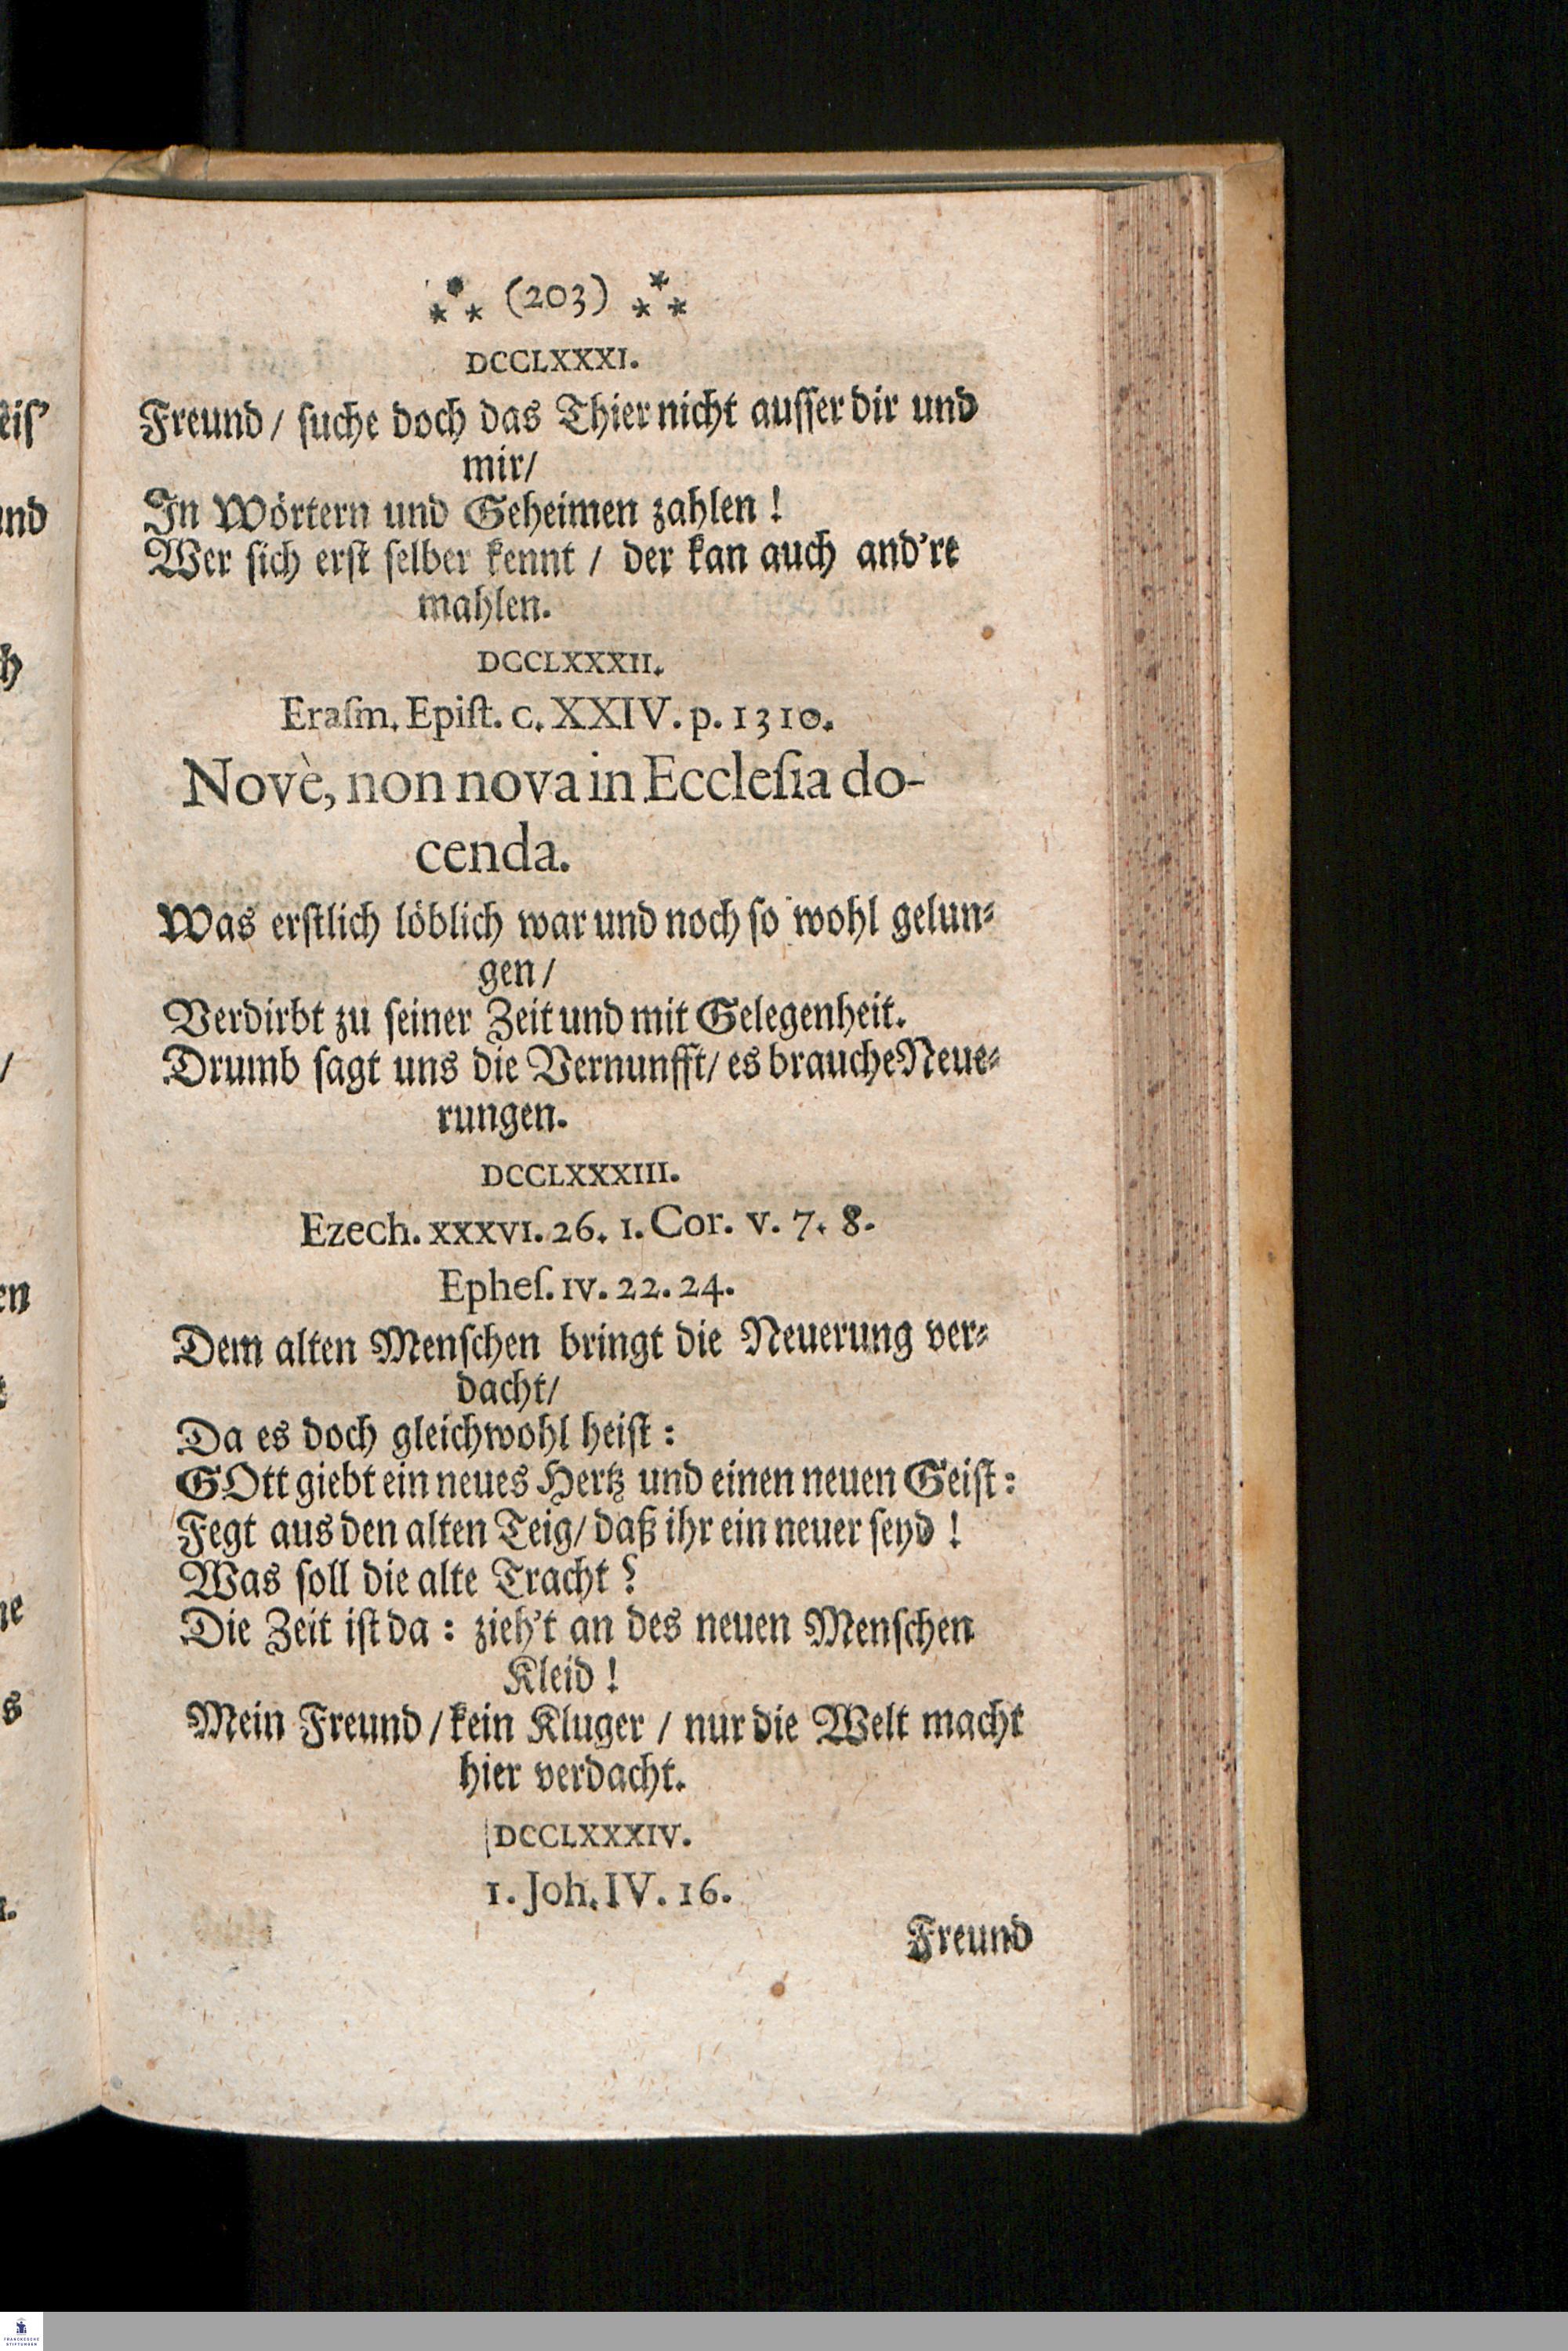 ⁂ (203) ⁂
DCCLXXXI.
Freund / ſuche doch das Thier nicht auſſer dir und
mir/
In Wörtern und Geheimen zahlen !
Wer ſich erſt ſelber kennt / der kan auch and're
mahlen.
DCCLXXXII.
Eraſm. Epiſt. c. XXIV. p. 1310.
Novè, non nova in Eccleſia do-
cenda.
Was erſtlich löblich war und noch ſo wohl gelun⸗
gen /
Verdirbt zu ſeiner Zeit und mit Gelegenheit.
Drumb ſagt uns die Vernunfft / es brauche Neue⸗
rungen.
DCCLXXXIII.
Ezech. XXXVI. 26. 1. Cor. V. 7. 8.
Epheſ. IV. 22. 24.
Dem alten Menſchen bringt die Neuerung ver⸗
dacht/
Da es doch gleichwohl heiſt :
GOtt giebt ein neues Hertz und einen neuen Geiſt :
Fegt aus den alten Teig/ daß ihr ein neuer ſeyd !
Was ſoll die alte Tracht ?
Die Zeit iſt da : zieh't an des neuen Menſchen
Kleid !
Mein Freund / kein Kluger / nur die Welt macht
hier verdacht.
DCCLXXXIV.
1. Joh. IV. 16.
Freund
FRANCKESCHE
STIFTUNGEN